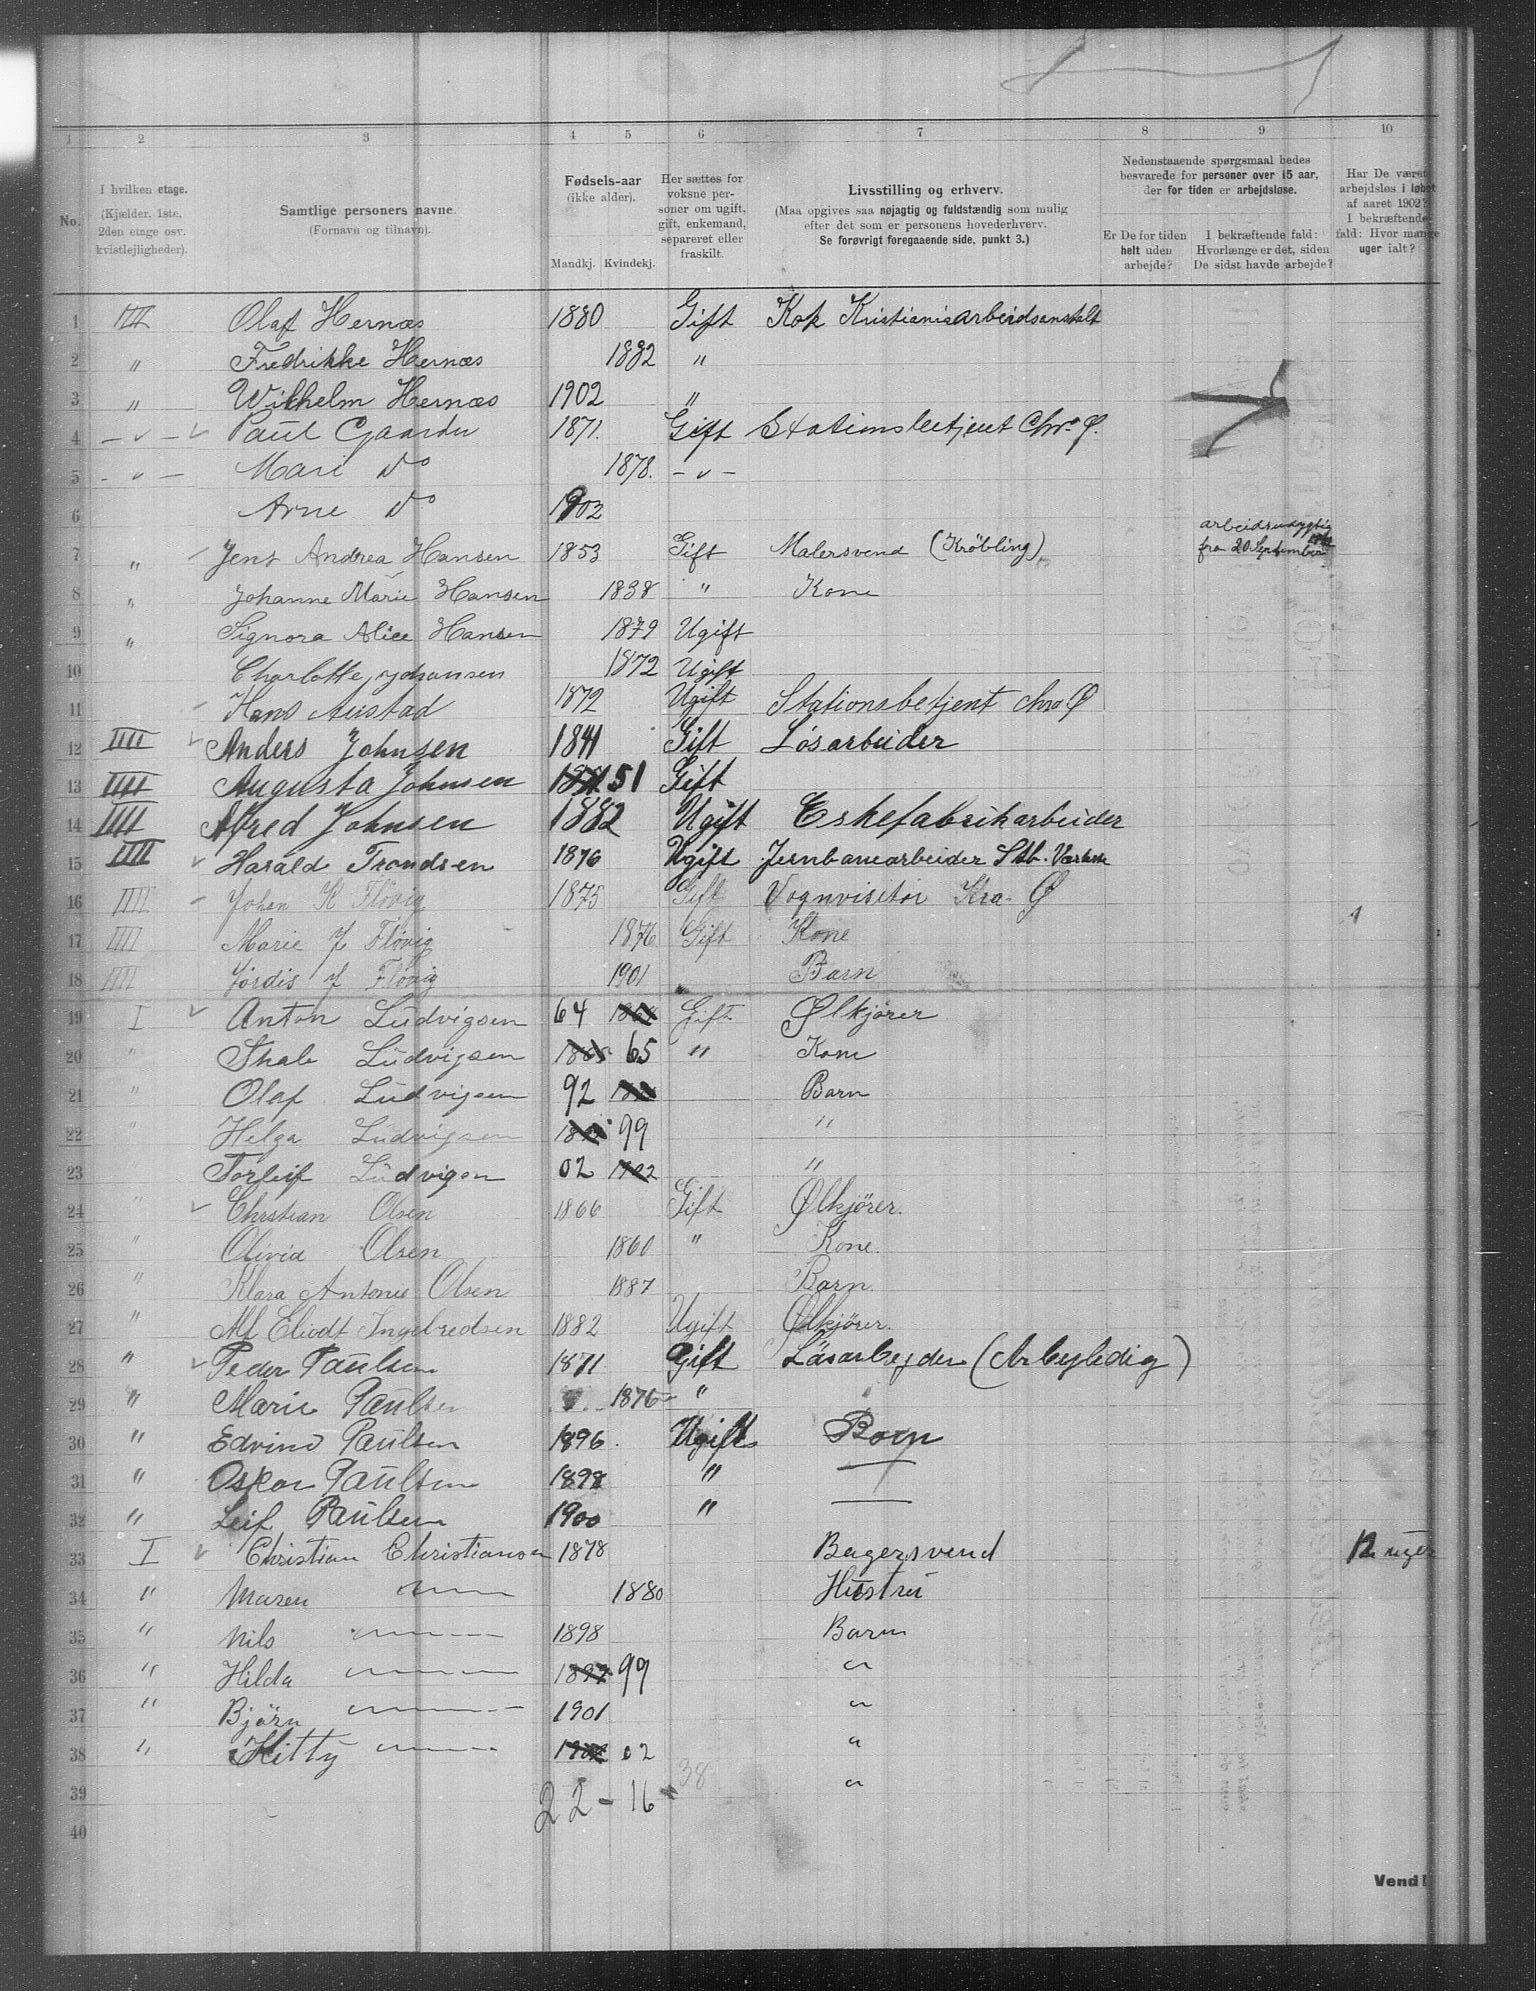 1 2 3 4 5 6 7 8 9 10
No.
I hvilken etage.
(Kjælder, 1ste,
2den etage osv.
kvistlejligheder).
Samtlige personers navne.
(Fornavn og tilnavn).
Fødsels-aar
(ikke alder).
Mandkj. Kvindekj.
Her sættes for
voksne per-
soner om ugift,
gift, enkemand,
separeret eller
fraskilt.
Livsstilling og erhverv.
(Maa opgives saa nøjagtig og fuldstændig som mulig
efter det som er personens hovederhverv.
Se forøvrigt foregaaende side, punkt 3.)
Nedenstaaende spørgsmaal bedes
besvarede for personer over 15 aar,
der for tiden er arbejdsløse.
Er De for tiden
helt uden
arbejde?
I bekræftende fald:
Hvorlænge er det, siden
De sidst havde arbejde?
Har De været
arbejdsløs i løbet
af aaret 1902?
I bekræftende
fald: Hvor mange
uger ialt?
1 III Olaf Hernæs 1880 Gift Kok Kristianiaarbeidsanstalt
2 " Fredrikke Hernæs 1882 "
3 " Wilhelm Hernæs 1902 "
4 - " - Paul Gaarder 1871. Gift Stationsbetjent Chr. Ø.
5 - " - Mari do 1878. - " -
6 Arne do 1902
7 " Jens Andrea Hansen 1853 Gift Malersvend (Kröbling) arbeidsudygtig fra 20 September
8 " Johanne Marie Hansen 1838 " Kone
9 " Signora Alice Hansen 1879 Ugift
10 Charlotte Johansen 1872 Ugift
11 Hans Austad 1872 Ugift Stationsbetjent Chra Ø
12 IIII Anders Johnsen 1841 Gift Løsarbeider
13 IIII Augusta Johnsen 51 Gift
14 IIII Alfred Johnsen 1882 Ugift Eskefabrikarbeider
15 IIII Harald Trondsen 1876 Ugift Jernbanearbeider Stb. Værkste
16 IIII Johan K Fløvig 1875 Gift Vognvisitør Kra. Ø
17 IIII Marie J Fløvig 1876 Gift Kone
18 IIII Jordis J Fløvig 1901 Barn
19 I Anton Ludvigsen 64 Gift Ølkjører
20 " Ludvigsen 65 " Kone
21 " Olaf Ludvigsen 92 Barn
22 " Helga Ludvigsen 99 "
23 " Torleif Ludvigsen 02 1902 "
24 " Christian Olsen 1866 Gift Ølkjører.
25 " Olivia Olsen 1860 " Kone.
26 " Klara Antonie Olsen 1887 Barn.
27 " Alf Eliodt Ingebredsen 1882 Ugift Ølkjører.
28 " Peder Paulsen 1871 Gift Løsarbejder (Arbejledig)
29 " Marie Paulsen 1876 "
30 " Edvind Paulsen 1896. Ugift Born
31 " Oskar Paulsen 1898 " —
32 " Leif Paulsen 1900 " —
33 I Christian Christiansen 1878 Bagersvend 12 uger
34 " Maren — 1880 Hustru
35 " Nils — 1898 Barn
36 " Hilda — 1897 99 "
37 " Bjørn — 1901 "
38 " Kitty — 02 "
39 22 - 16 38 "
40
Vend!